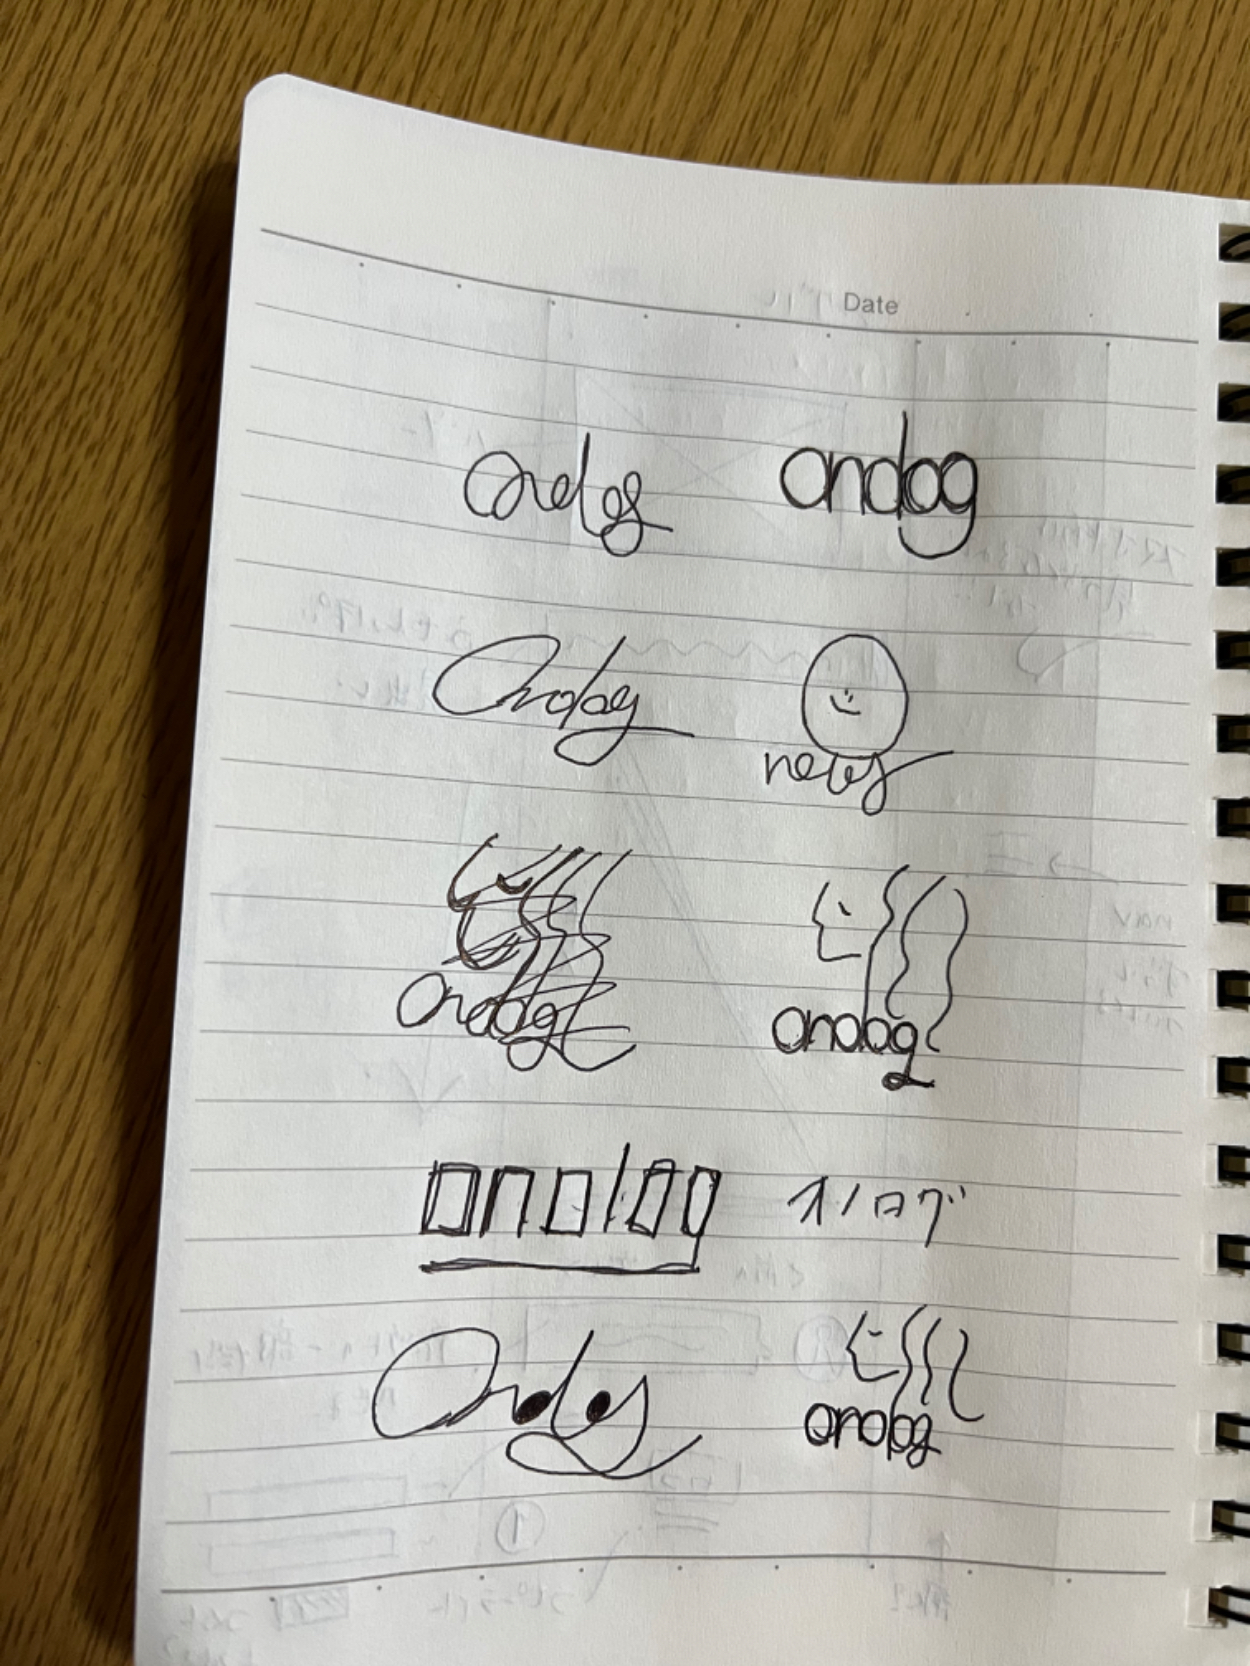 Date
onolog onolog
onolog
news
onolog onolog
onolog オノログ
onolog onolog